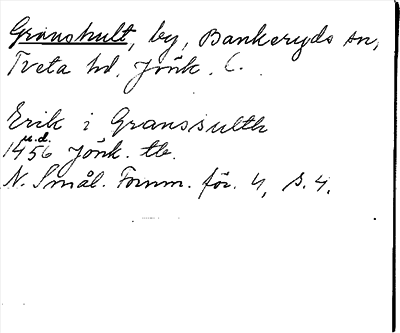 Granshult, by, Bankeryds sn,
Tveta hd, Jönk. l.
Erik i Granssulth
u.d.
1456 Jönk. tb.
N. Smål. Fornm. för. 4, s. 4.